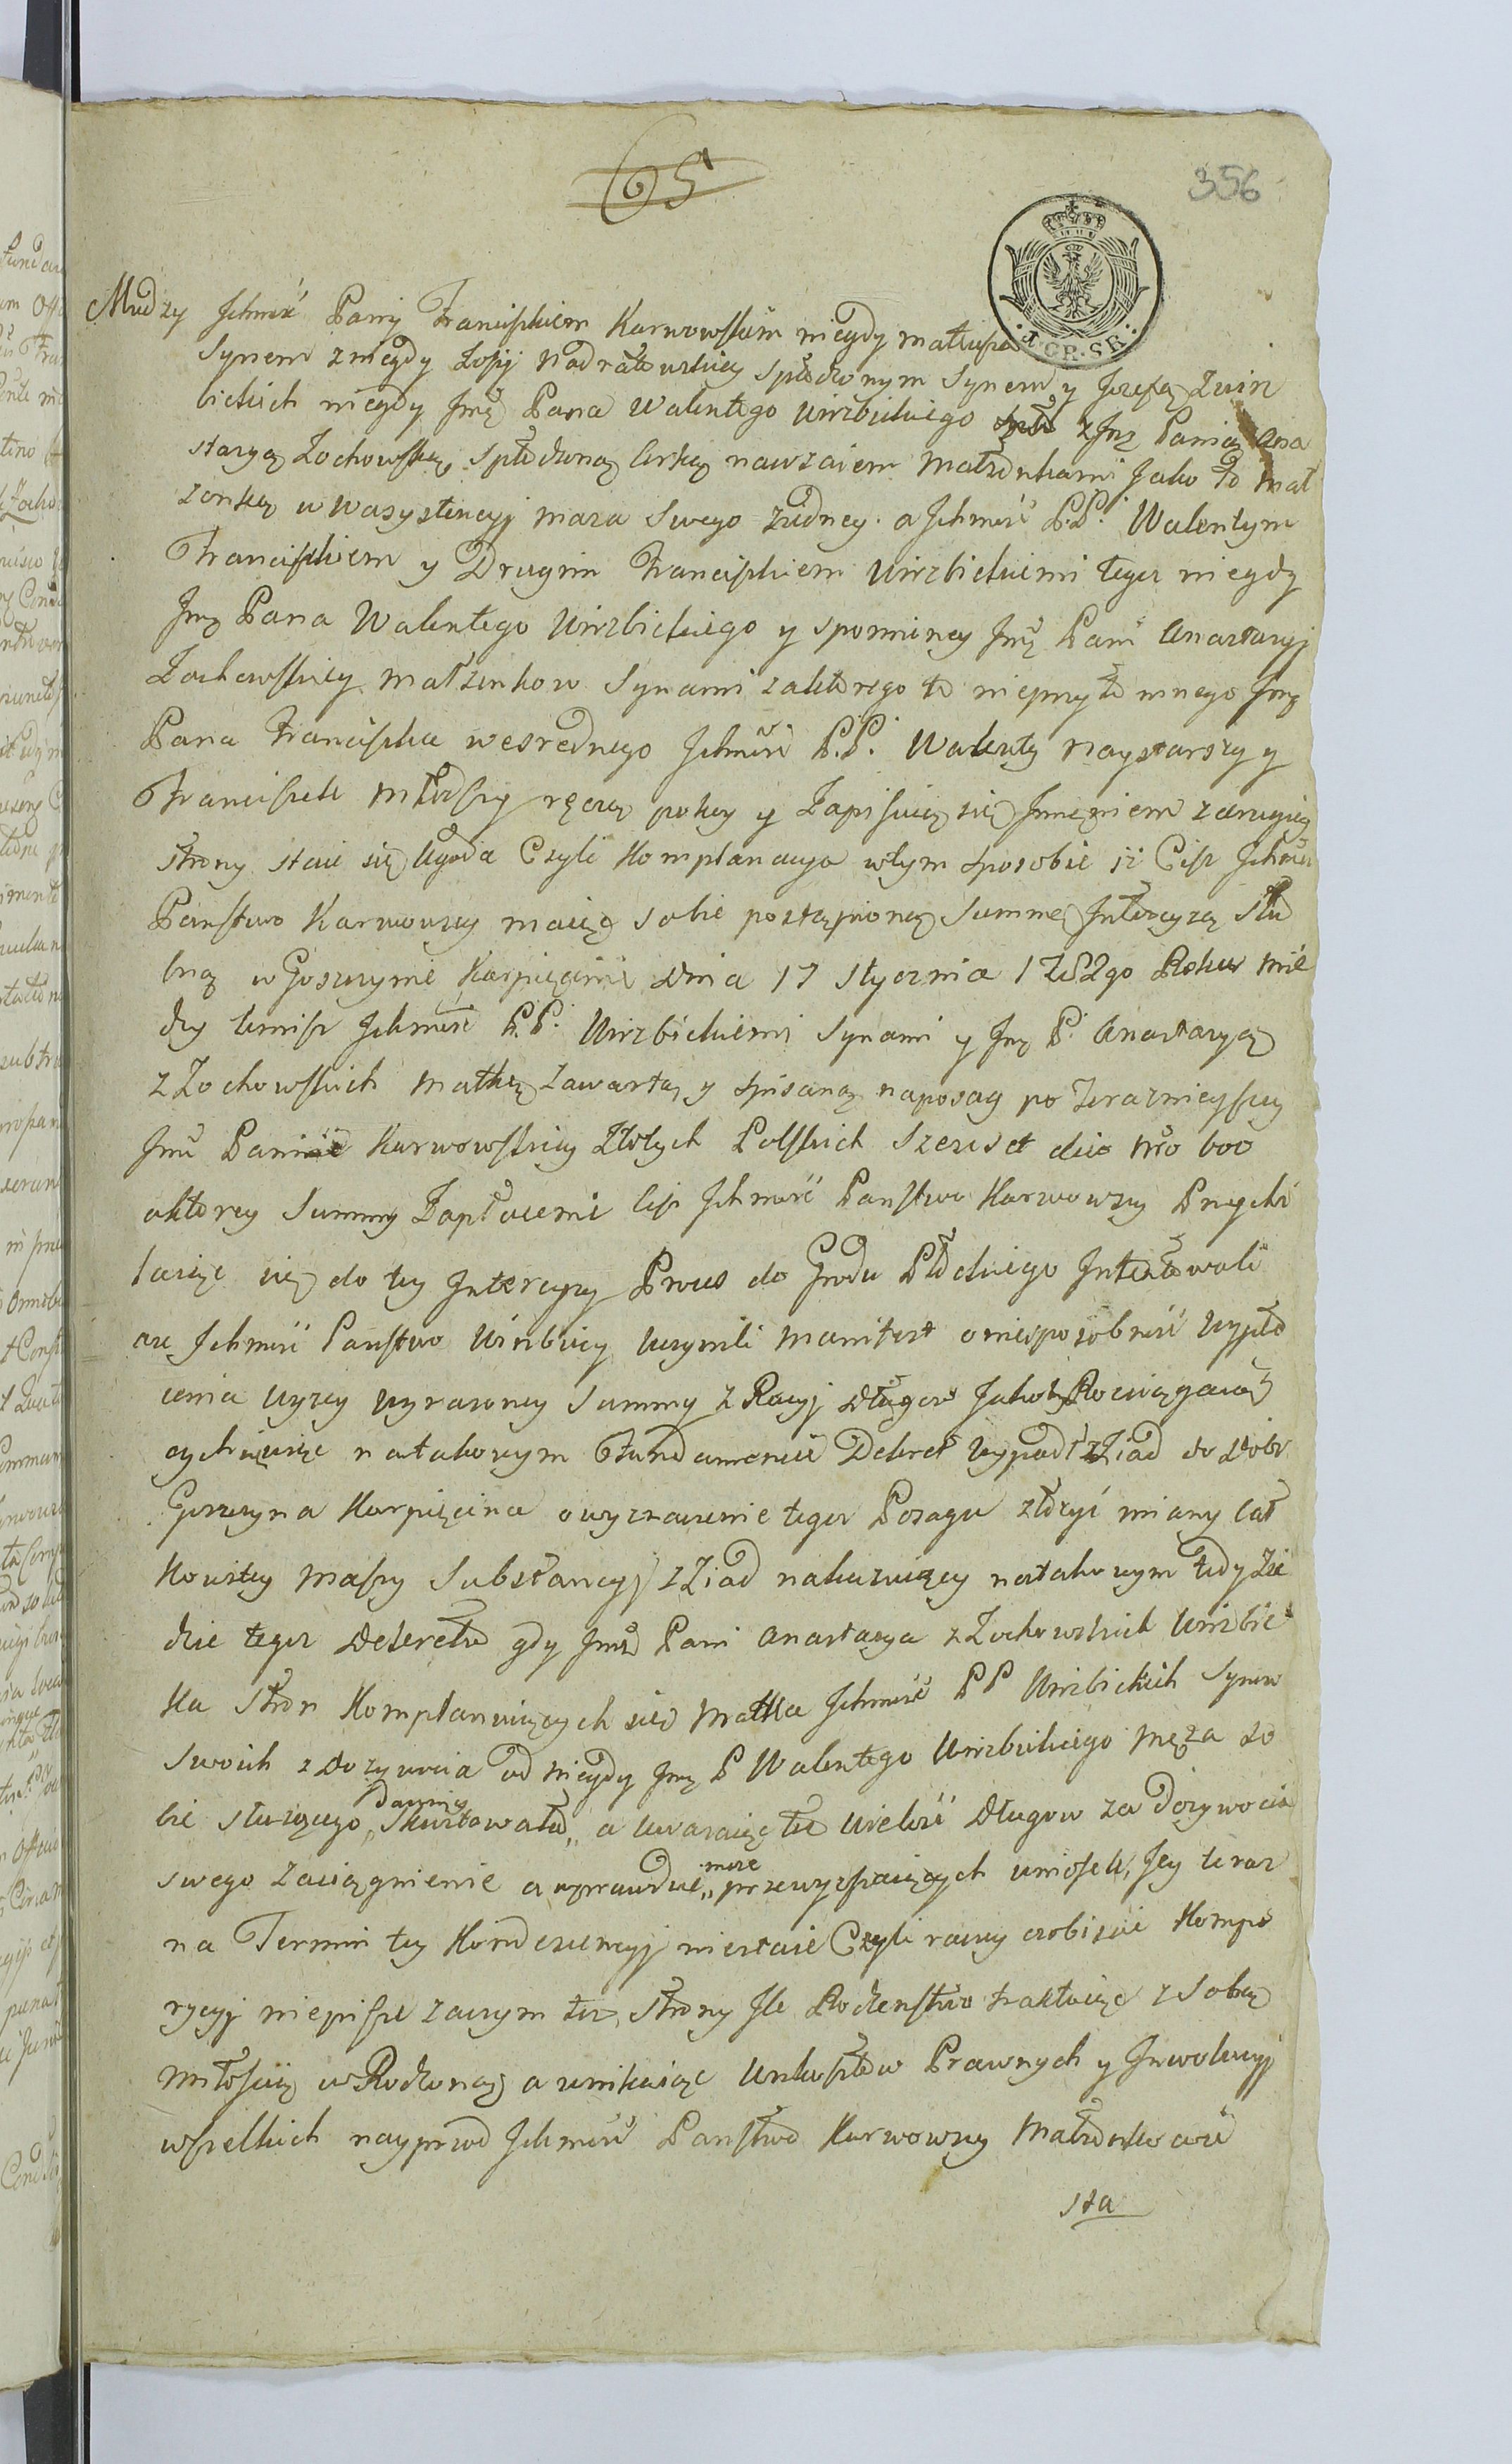 65
356
1. GR. SR.
Miedzy Ichmść Pany Franciszkiem Karwowskim niegdy Mateusza
Synem z niegdy Zofij Nadratowskiey spłodzonym Synem y Jozefą z Wirz
bickich niegdy Jmę Pana Walentego Wirzbickiego z Jmę Panią Ana
stazyą Zochowską spłodzoną Corką nawzaiem Małżonkami Jako to Mał
zonką w Wasystencyj męza Swego z iedney. a Ichmść P.P. Walentym
Franciszkiem y Drugim Franciszkiem Wirzbickiemi tegoz niegdy
Jmę Pana Walentego Wirzbickiego y spomnioney Jmę Pani Anastazyj
Zochowskiey Małzonkow Synami za ktorego to nieprzytomnego Jmę
Pana Franciszka wesrednego Ichmść P.P. Walenty Naystarszy y
Franciszek Młodszy ręczą pokey y Zapisuią się Jmieniem z drugiey
strony staie się Ugoda Czyli Komplanacya w tym sposobie iż Ciż Ichmść
Państwo Karwowscy maiąc sobie postąpioną Summę Jntercyzą Słu
bną w Goszczynie Karpięcinie dnia 17 Stycznia 1782go Roku mie
dzy temisz Ichmść P.P. Wirzbickiemi Synami y Jmę P. Anastazyą
z Zochowskich Matką zawartą y spisaną na posag po Teraznieyszey
Jmć Pannie Karwowskiey Złotych Polskich Szescset dico Nro 600
o ktorey Summy Zapłacenie Ciż Ichmść Państwo Karwowscy Przychi
laiąc się do tey Jntercyzy Proces do Grodu Płockiego Jntentowali
aże Ichmść Państwo Wirzbiccy uczynili Manifest o niesposobność wypła
cenia wyzey wyrazoney Summy z Racyj długow Jakoby Rozciągaią
cych więc na takowym Fundamencie Dekret wypadł z Ziad do dobr
Goszczyna Karpięcina o wyznaczenie tegoz Posagu złożyć miany cał
kowitey Massy Substancyj z Ziad nakazuiący na takowym tedy Zie
dzie tegoz Dekretu gdy Jmść Pani Anastazya z Zochowskich Wirzbic
ka Stron Komplanuiących się Matka Ichmść P P Wirzbickich Synow
Swoich z dozywocia od niegdy Jmę P Walentego Wirzbickiego Męza So
bie słuzącego dawno Skwitowała a uwazaiąc tu wielość Długow za Dozywocia
swego Zaciągnienie a wprawdzie moze przewyzszaiących wniosek Jey teraz
na Termin tey Kondescencyj niestaie Czyli raczey osobiscie Kompo
zycyj niepisze zaczym też Strony Jle Rodzeństwo traktuiąc z Sobą
Miłością wRodzoną a unikaiąc Uszkosztow Prawnych y Jnwolucyj
wszelkich nayprzod Ichmść Państwo Karwowscy Małżonkowie
sta